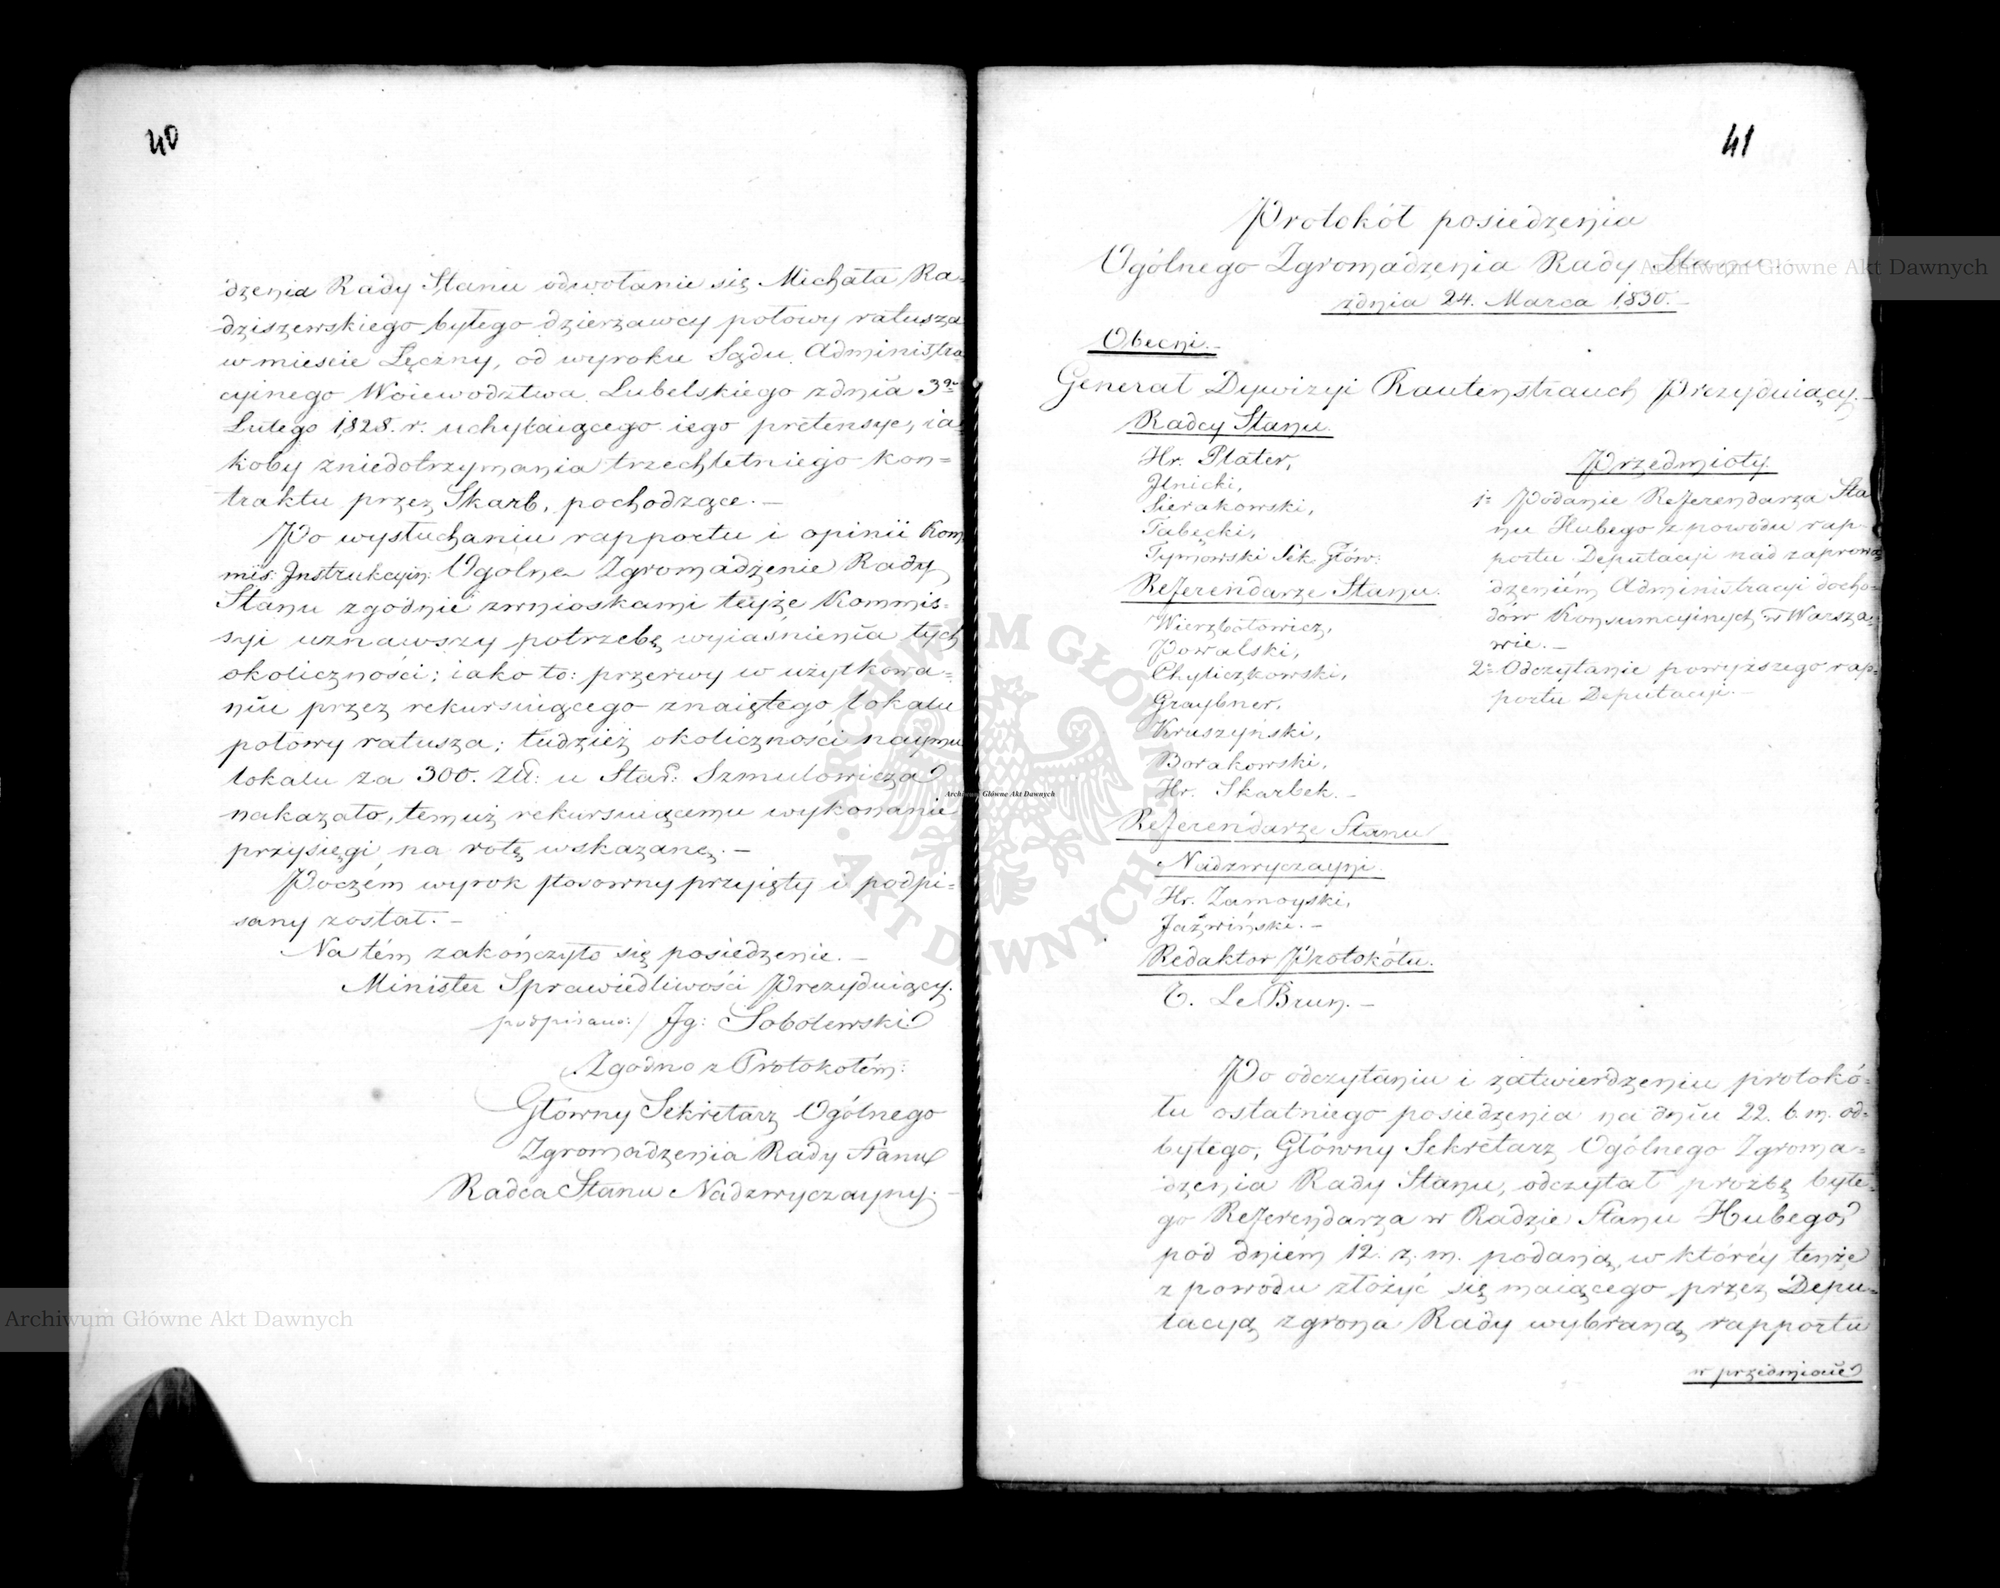 40
dzenia Rady Stanu odwołanie się Michała Ra-
dziszewskiego byłego dzierżawcy połowy ratusza
w mieście Łęczny, od wyroku Sądu Administra-
cyjnego Woiewodztwa Lubelskiego z dnia 3go
Lutego 1828. r. uchylaiącego iego pretensye, ia-
koby z niedotrzymania trzechletniego kon-
traktu przez Skarb, pochodzące. –
Po wysłuchaniu rapportu i opinii Kom-
mis: Instrukcyin: Ogolne Zgromadzenie Rady
Stanu zgodnie z wnioskami teyże Kommis-
syi uznawszy potrzebę wyiaśnienia tych
okoliczności; iako to: przerwy w użytkowa-
niu przez rekursuiącego znaiętego lokalu
połowy ratusza; tudzież okoliczności naymu
lokalu za 300. Zł: u Star: Szmulowicza
nakazało, temuż rekursuiącemu wykonanie
przysięgi na rotę wskazaną. –
Poczém wyrok stosowny przyięty i podpi-
sany został. –
Na tém zakończyło się posiedzenie. –
Minister Sprawiedliwości Prezyduiący.
podpisano:/ Ig: Sobolewski
Zgodno z Protokołem:
Główny Sekretarz Ogólnego
Zgromadzenia Rady Stanu
Radca Stanu Nadzwyczayny. –
41
Protokół posiedzenia
Ogólnego Zgromadzenia Rady Stanu
z dnia 24. Marca 1830. –
Obecni. –
Generał Dywizyi Rautenstrauch Prezyduiący. –
Radcy Stanu.
Hr. Plater,
Ilnicki,
Sierakowski,
Tabęcki,
Tymowski Sek. Głów:
Referendarze Stanu.
Wierzbołowicz,
Powalski,
Chyliczkowski,
Graybner,
Kruszyński,
Borakowski,
Hr. Skarbek. –
Referendarze Stanu
Nadzwyczayni.
Hr. Zamoyski,
Jaźwiński. –
Redaktor Protokółu.
T. Le Brun. –
Przedmioty.
1o Podanie Referendarza Sta-
nu Hubego z powodu rap-
portu Deputacyi nad zaprowa-
dzeniém Administracyi docho-
dów Konsumcyinych w Warsza-
wie. –
2o Odczytanie powyższego rap-
portu Deputacyi. –
Po odczytaniu i zatwierdzeniu protokó-
łu ostatniego posiedzenia na dniu 22. b. m. od-
bytego, Główny Sekretarz Ogólnego Zgroma-
dzenia Rady Stanu, odczytał prośbę byłe-
go Referendarza w Radzie Stanu Hubego
pod dniem 12. z. m. podaną, w któréy tenże
z powodu złożyć się maiącego przez Depu-
tacyą z grona Rady wybraną rapportu
w przedmiocie
Archiwum Główne Akt Dawnych
Archiwum Główne Akt Dawnych
Archiwum Główne Akt Dawnych
ARCHIWUM GŁÓWNE • AKT DAWNYCH •